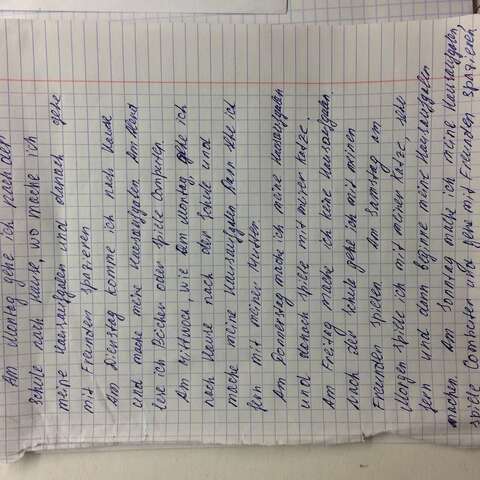 Am Montag gehe ich nach der
Schule nach Hause, wo mache ich
meine Hausaufgaben und danach gehe
mit Freunden spazieren
Am Dienstag komme ich nach Hause
und mache meine Hausaufgaben. Am Abend
lese ich Bücher oder spiele Computer.
Am Mittwoch, wie Am Montag, gehe ich
nach Hause nach der Schule und
mache meine Hausaufgaben Dann sehe ich
fern mit meiner Mutter.
Am Donnerstag mache ich meine Hausaufgaben
und danach spiele mit meiner Katze.
Am Freitag mache ich keine Hausaufgaben
Nach der Schule gehe ich mit meinen
Freunden spielen. Am Samstag am
Morgen spiele ich mit meiner Katze, sehe
fern und dann beginne meine Hausaufgaben
machen. Am Sonntag mache ich meine Hausaufgaben,
spiele Computer und gehe mit Freunden spazieren